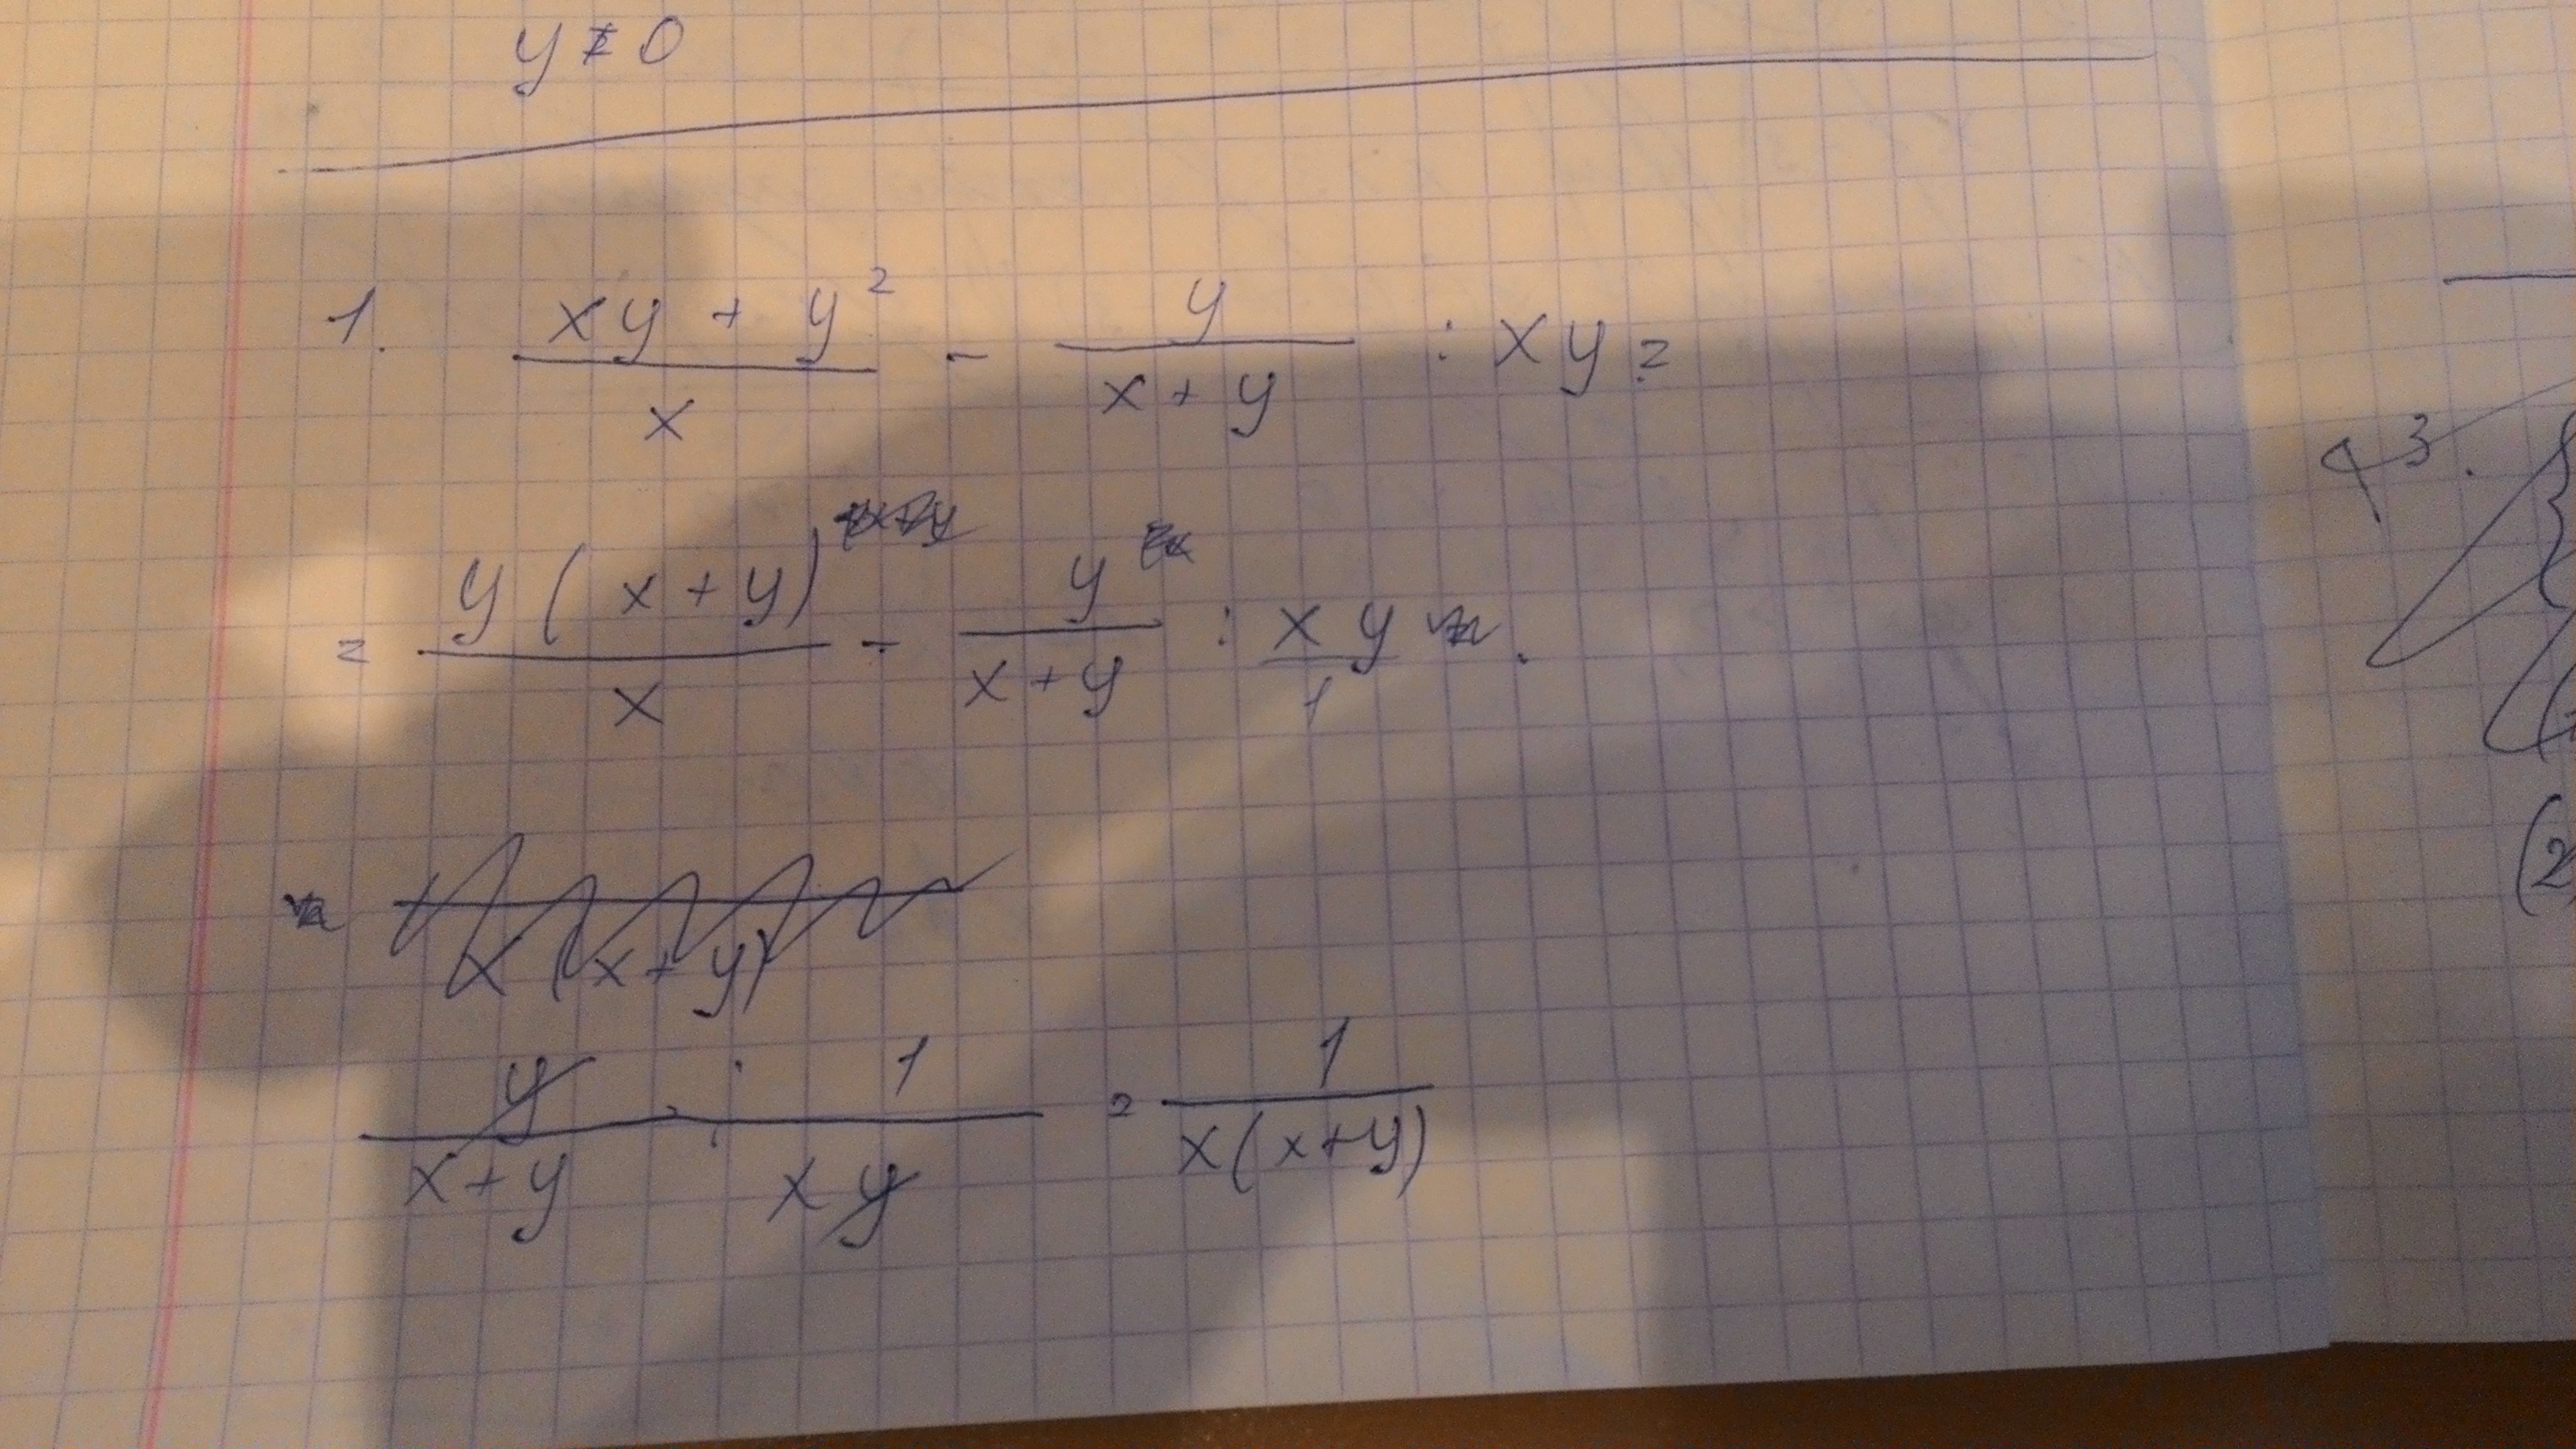 y ≠ 0
1. (xy + y²)/x - y/(x + y) : xy =
= y(x + y)/x - y/(x + y) : xy/1 .
x(x + y)
y/(x + y) : 1/(xy) = 1/(x(x+y))
3.
(2